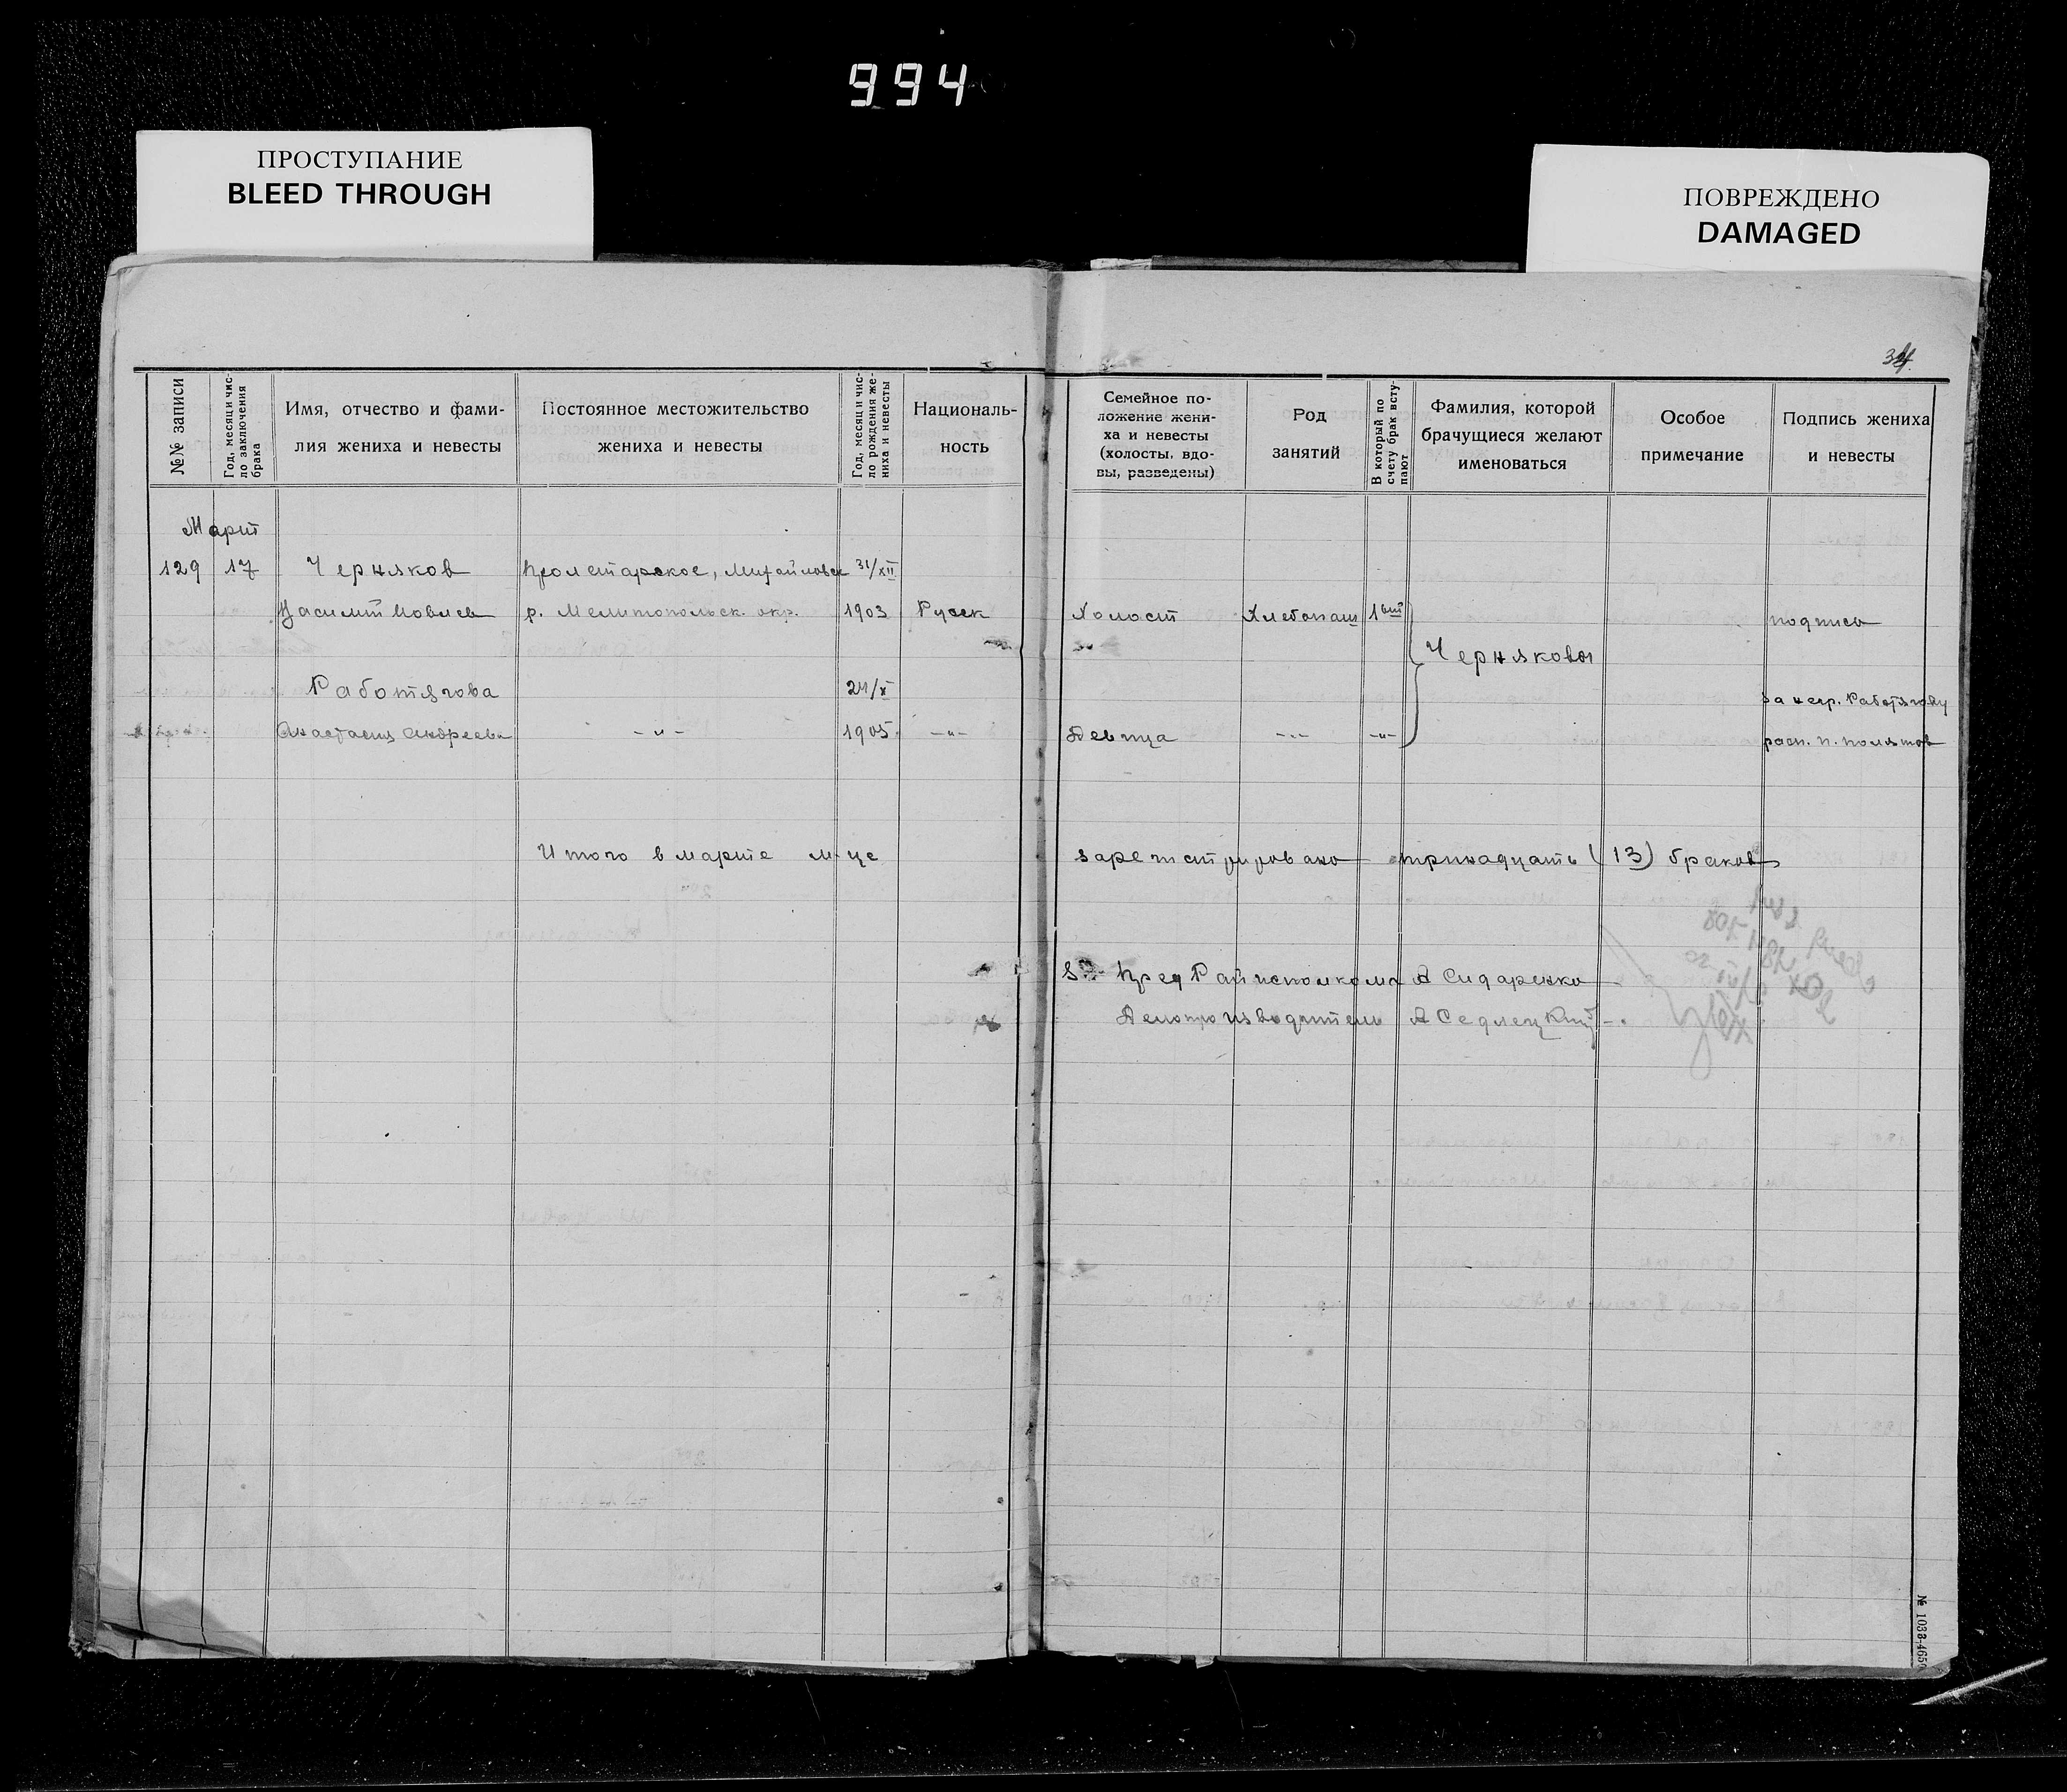 994
ПРОСТУПАНИЕ
BLEED THROUGH
ПОВРЕЖДЕНО
DAMAGED
34
№№ записи
Год, месяц и чис-
ло заключения
брака
Имя, отчество и фами-
лия жениха и невесты
Постоянное местожительство
жениха и невесты
Год, месяц и чис-
ло рождения же-
ниха и невесты
Националь-
ность
Семейное по-
ложение жени-
ха и невесты
(холосты, вдо-
вы, разведены)
Род
занятий
В который по
счету брак всту-
пают
Фамилия, которой
брачущиеся желают
именоваться
Особое
примечание
Подпись жениха
и невесты
Март
129 17 Черняков Пролетарское, Михайловск 31/XII
р. Мелитопольск. окр. 1903 Русск Холост Хлебопаш 1вый подпись
Черняковы
Работягова 24/X за негр. Работягову
Анастасия Андреевна -"- 1905 -"- Девица -"- -"- расп.
Итого в марте м-це зарегистрировано тринадцать (13) браков
Пред Райисполкома А Сидаренко
Делопроизводитель А Седлецкий
№ 1038-465